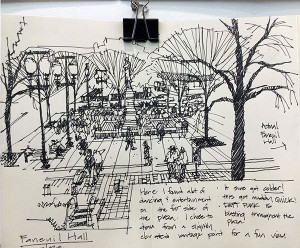 Actual
Faneuil
Hall
Here I found a lot of
dancing & entertainment
on the far side of
the plaza. I chose to
draw from a slightly
elevated vantage point for a fun view.
It sure got colder!
this got muddied QUICK!
DAFT PUNK is
blasting throughout the
plaza.
Faneuil Hall